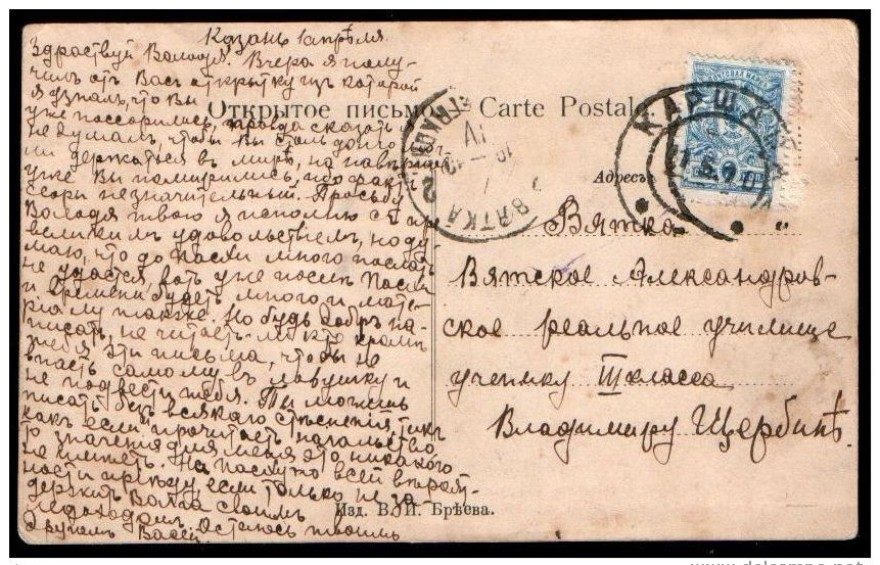 Казань 1 апрѣля
Здраствуй Володя. Вчера я полу-
чилъ отъ Васъ открытку изъ которой
я узналъ, что Вы
уже поссорились, правда сказать я
не думалъ, чтобы Вы стали долго
держаться въ мирѣ, но навѣрно
уже Вы помирились, ибо фактъ
ссоры незначительный. Просьбу
Володя твою я исполню съ
великимъ удовольствіемъ, но ду-
маю, что до Пасхи много послать
не удастся, вотъ уже послѣ Пасхи
и времени будетъ много и мате-
ріалу также. Но будь добръ на-
писать, не читаетъ ли кто кромѣ
тебя эти письма, чтобы не
впасть самому въ ловушку и
не подвести тебя. Ты можешь
писать безъ всякаго стѣсненія, такъ
какъ если прочитаетъ начальство
то значенія для меня это никакого
не имѣетъ. На Пасху по всей вѣроят-
ности пріѣду, если только не за-
держитъ Волга своимъ
ледоходомъ. Остаюсь твоимъ
другомъ Васей
Открытое письмо. Carte Postale
Адресъ:
Вятка
Вятское Александров-
ское реальное училище
ученику III класса
Владимиру Щербинѣ.
Изд. В. И. Брѣева.
ВЯТКА
www.delcampe.net